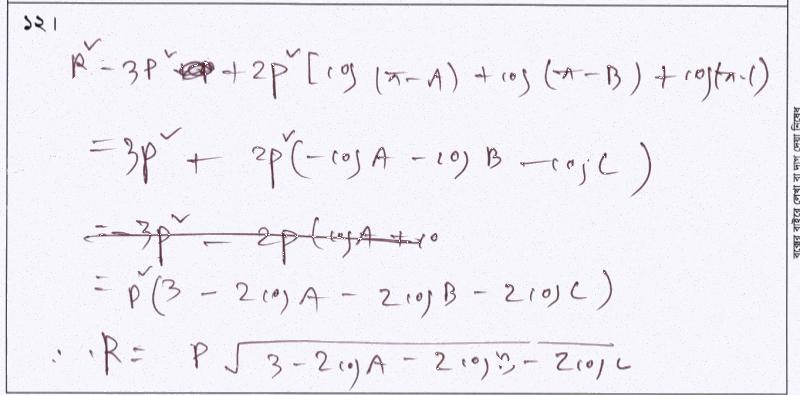 ১২।
R² - 3P² + 2P² [cos (π-A) + cos (π-B) + cos(π-C)
= 3P² + 2P² (-cos A - cos B - cos C )
= - 3P² - 2P (cosA + co
= P² (3 - 2 cos A - 2 cos B - 2 cos C )
∴ R = P √3 - 2 cos A - 2 cos B - 2 cos C
বক্সের বাইরে লেখা বা দাগ দেয়া নিষেধ